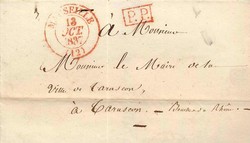 MARSEILLE
13
OCT.
1837
(12)
P.P.
à Monsieur
Monsieur le Maire de la
Ville de Tarascon,
à Tarascon. — Bouches du Rhône. —